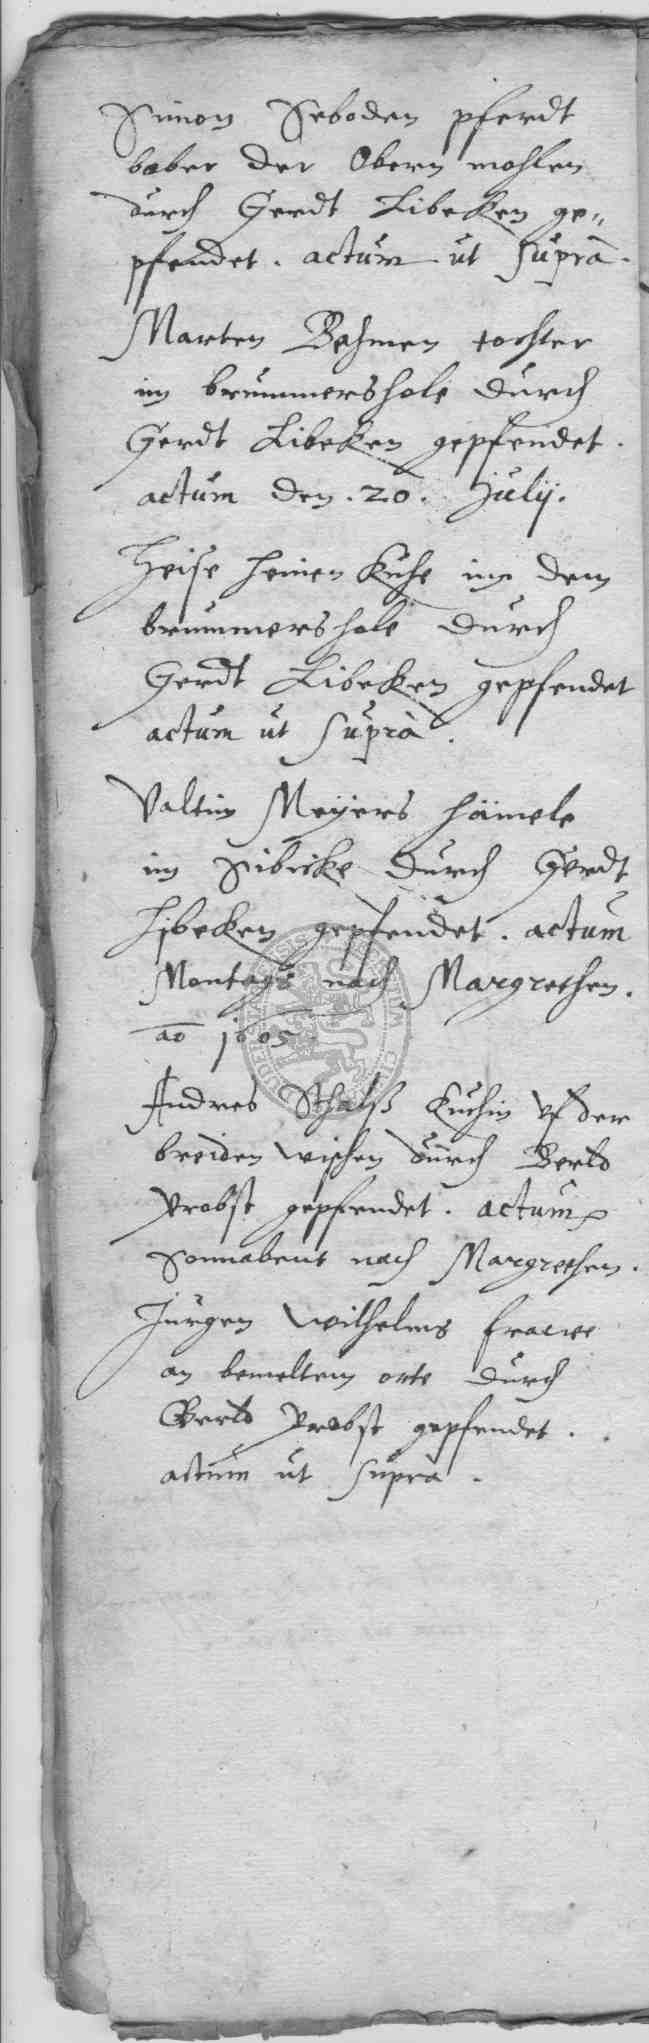 Simon Seboden pferdt
bober der Obern mohlen
durch Gerdt Libeken ge„
pfendet. actum ut suprà.
Marten Behmen tochter
im brummershole durch
Gerdt Libeken gepfendet.
actum den .20. Julij.
Heise heinen Kuhe im dem
brummershole durch
Gerdt Libeken gepfendet
actum ut suprà.
Valtin Meÿers hämele
im Sibicke durch Gerdt
Libeken gepfendet. actum
Montags nach Margrethen.
ao 1605.
Andres Kuhin vf der
breiden wischen durch Berld
Probst gepfendet. actum
Sonnabent nach Margrethen.
Jurgen Wilhelms frawe
an bemeltem orte durch
Berld Probst gepfendet.
actum ut suprà.